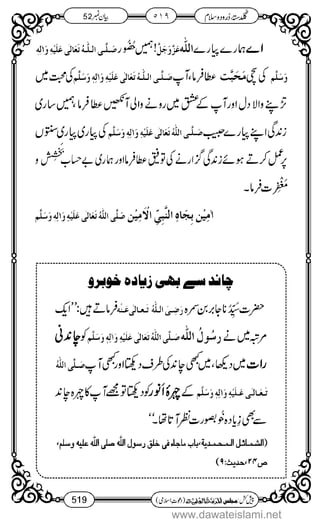 گلدستۂ دُرود و سلام ٥١٩ بیان نمبر 52
اے ہمارے پیارے اللہ عَزَّوَجَلَّ! ہمیں حُضُور صَلَّى اللّٰهُ تَعَالٰى عَلَيْهِ وَاٰلِهٖ
وَسَلَّم کی سچّی مَحَبَّت عطا فرما، آپ صَلَّى اللّٰهُ تَعَالٰى عَلَيْهِ وَاٰلِهٖ وَسَلَّم کی محبت میں
تڑپنے والا دل اور آپ کے عشق میں رونے والی آنکھیں عطا فرما، ہمیں ساری
زندگی اپنے پیارے حبیب صَلَّى اللّٰهُ تَعَالٰى عَلَيْهِ وَاٰلِهٖ وَسَلَّم کی پیاری پیاری سنتوں
پر عمل کرتے ہوئے زندگی گزارنے کی توفیق عطا فرما اور ہماری بے حساب بخشش و
مَغْفِرت فرما۔
اٰمِيْن بِجَاهِ النَّبِىِّ الْاَمِيْن صَلَّى اللّٰهُ تَعَالٰى عَلَيْهِ وَاٰلِهٖ وَسَلَّم
چاند سے بھی زیادہ خوبرو
حضرت سَیِّدُنا جابر بن سمرہ رَضِىَ اللّٰهُ تَعَالٰى عَنْهُ فرماتے ہیں: ’’ایک
مرتبہ میں نے رَسُولُ اللّٰه صَلَّى اللّٰهُ تَعَالٰى عَلَيْهِ وَاٰلِهٖ وَسَلَّم کو چاندنی
رات میں دیکھا، میں کبھی چاند کی طرف دیکھتا اور کبھی آپ صَلَّى اللّٰهُ
تَعَالٰى عَلَيْهِ وَاٰلِهٖ وَسَلَّم کے چہرۂ اَنور کو دیکھتا تو مجھے آپ کا چہرہ چاند
سے بھی زیادہ خُوبصورت نظر آتا تھا۔‘‘
(الشمائل المحمدية، باب ماجاء فى خلق رسول الله صلى الله عليه وسلم،
ص٢٤، حديث:٩)
519 پیش کش: مجلس المدینۃ العلمیۃ (دعوتِ اسلامی)
www.dawateislami.net